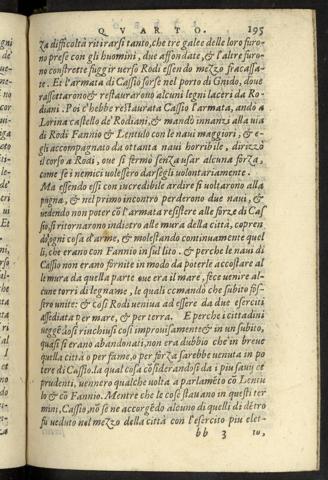 QVARTO. 195
za difficoltà ritirarsi tanto, che tre galee delle loro furo-
no prese con gli huomini, due affondate, & l'altre furo-
no constrette fuggir verso Rodi essendo mezzo fracassa-
te. Et l'armata di Cassio forse nel porto di Gnido, doue
rassettarono & restaurarono alcuni legni laceri da Ro-
diani. Poi c'hebbe restaurata Cassio l'armata, andò a
Lorina castello de' Rodiani, & mandò innanzi alla via
di Rodi Fannio & Lentulo con le naui maggiori, & e-
gli accompagnato da ottanta naui horribile, dirizzò
il corso a Rodi, oue si fermò senza usar alcuna forza,
come se i nemici volessero darsegli volontariamente.
Ma essendo essi con incredibile ardire si voltarono alla
pugna, & nel primo incontro perderono due naui, &
vedendo non poter cō l'armata resistere alle forze di Cas
sio, si ritornarono indietro alle mura della città, copren
do ogni cosa d'arme, & molestando continuamente quel
li, che erano con Fannio in sul lito. & perche le naui di
Cassio non erano fornite in modo da poterle accostare al
le mura da quella parte oue era il mare, fece uenire al-
cune torri di legname, le quali comandò che subito fos-
sero unite: & così Rodi ueniua ad essere da due eserciti
assediata per mare, & per terra. E perche i cittadini
uggēdosi rinchiusi così improuisamente & in un subito,
quasi si erano abandonati, non era dubbio che in breue
quella città o per fame, o per forza sarebbe uenuta in po
tere di Cassio. la qual cosa cōsiderandosi da i piu sauij et
prudenti, uennero qualche volta a parlamēto cō Lentu
lo & cō Fannio. Mentre che le cose stauano in questi ter
mini, Cassio, nō se ne accorgēdo alcuno di quelli di dētro
fu veduto nel mezzo della città con l'esercito piu elet-
bb 3 to,